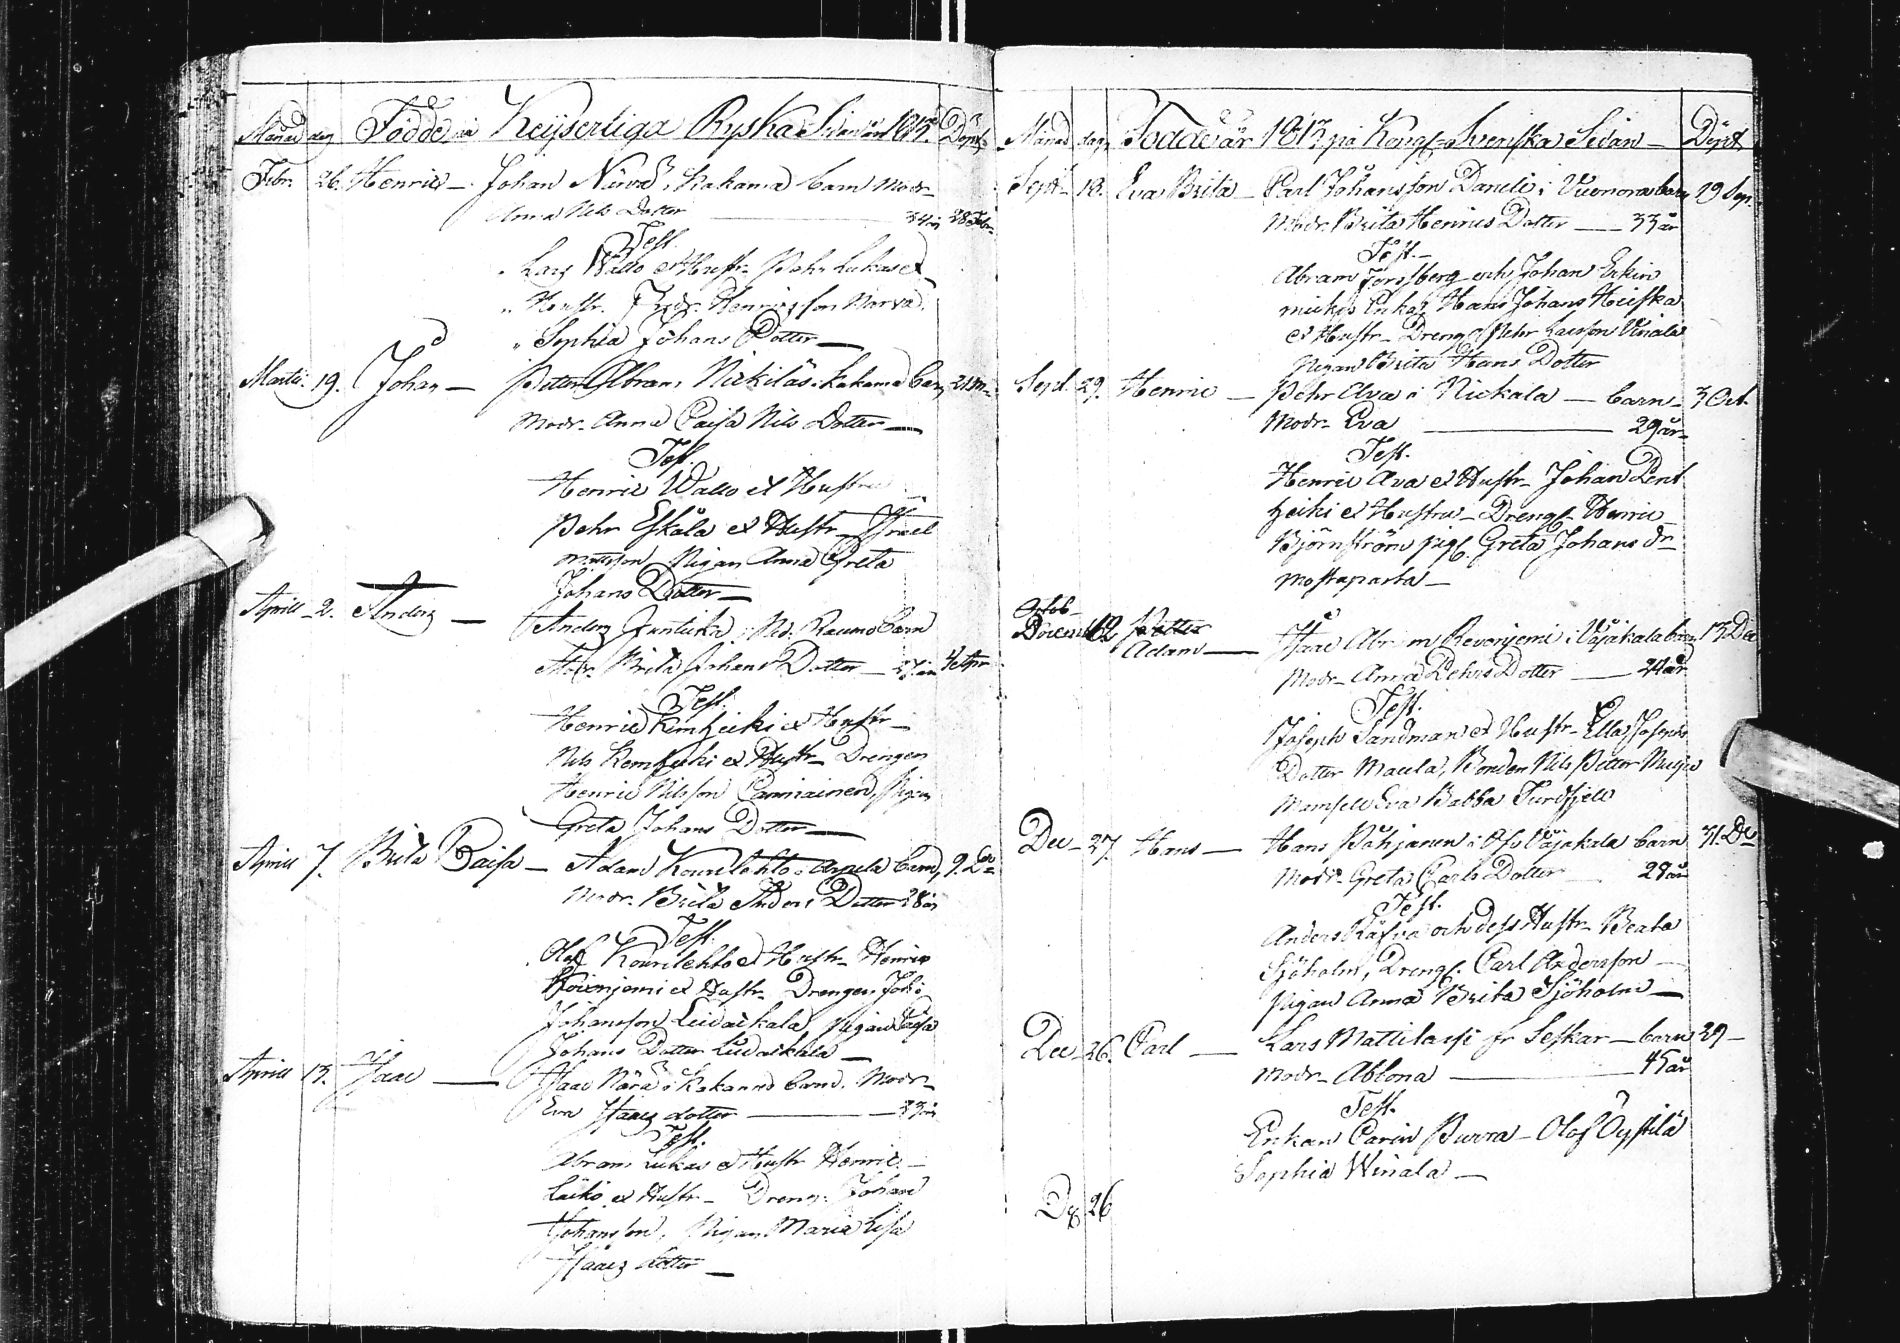 Månad dag Födde på Keijserliga Ryska Sidan år 1813. Döpt
Febr. 26. Henric — Johan Närvä i Kakama barn Modr
Anna Nils Dotter — 34 år 28 Febr
Test.
Lars Wallo et Hustr. Pehr Lukas et
Hustr. Fredr. Henricsson Narva
Sophia Johans Dotter —
Martii 19. Johan — Petter Abram Nickiläs i Kakama barn 21 M
Modr. Anna Caisa Nils Dotter —
Test.
Henric Wallo et Hustru
Pehr Eskåla et Hustr. Israel
Mattsson Pigan Anna Greta
Johans Dotter —
Aprill 2. Anders — Anders Junticka i Ned. Raumo barn
Modr. Brita Johans Dotter — 27 år 4 Apr
Test.
Henric Kemheiki et Hustr —
Nils Kemheiki et Hustr — Drengen
Henric Nilsson Canniainen, Pigan
Greta Johans Dotter —
Aprill 7. Brita Caisa — Adam Kourilehto i Arpela barn, 9. Do
Modr. Brita Anders Dotter 28 år
Test.
Olof Kourilehto et Hustr. Henric
Koivnjemi et Hustr. Drengen Joh:
Johansson Liedackala, Pigan Caisa
Johans Dotter Liedackala —
Aprill 13. Isaac — Isaac Närä i Kakama barn. Modr —
Eva Isaacs dotter — 33 år
Test.
Abram Lukas et Hustr Henric —
Laiko et Hustr — Dreng. Johan
Johansson, Pigan Maria Lisa
Isaacs dotter —
Månad dag. Födde år 1813 på Kongl. Svenska Sidan — Döpt
Sept. 18. Eva Brita — Carl Johansson Daneli i Vuonora barn 19 Sep.
Modr. Brita Henrics Dotter — 33 år
Test. —
Abram Forssberg och Johan Erkin
mickis Enka, Hans Johans Heiska
et Hustr. Drengen Pehr Larsson Vinala
Pigan Brita Hans Dotter
Sept. 29. Henric — Pehr Ava i Nickala — barn — 3 Oct.
Modr. Eva — 29 år
Test.
Henric Ava et Hustr. Johan Pent
heiki et Hustru — Drengl. Henric
Björnström pig. Greta Johans Dr
Mostaparta —
Octob.
Decemb 12 Petter Isaac Abram Revonjemi i Vojakala barn 13 Dec
Adam — Modr. Anna Pehrs Dotter — 24 år
Test.
Joseph Sandman et Hustr. Ella Josephs
Dotter Maula, Bonden Nils Petter
Mamsell Eva Babba Turdfjell
Dec. 27. Hans — Hans Påhjanen i Öfv. Väjakala barn 31. Dec
Modr. Greta Carls Dotter — 28 år
Test.
Anders Räfva och dess Hustr. Beata
Sjöholm, Drengl. Carl Andersson —
Pigan Anna Brita Sjöholm —
Dec 26. Carl — Lars Mattilassi fr Seskar — barn 29 —
Modr. Ablona — 45 år
Test.
Enkan Carin Purra — Olof Öystilä
Sophia Winala —
D 26